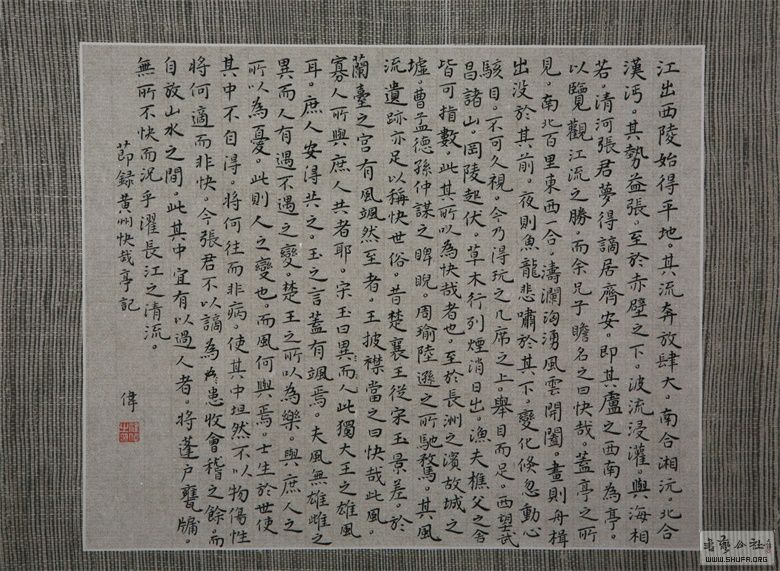 江出西陵始得平地。其流奔放肆大。南合湘沅。北合
漢沔。其勢益張。至於赤壁之下。波流浸灌。與海相
若。清河張君夢得謫居齊安。即其廬之西南為亭。
以覽觀江流之勝。而余兄子瞻名之曰快哉。蓋亭之所
見。南北百里東西一合。濤瀾洶湧風雲開闔。晝則舟楫
出没於其前。夜則魚龍悲嘯於其下。變化倏忽動心
駭目。不可久視。今乃得玩之几席之上。舉目而足。西望武
昌諸山。岡陵起伏。草木行列煙消日出。漁夫樵父之舍
皆可指數。此其所以為快哉者也。至於長洲之濱故城之
墟。曹孟德孫仲謀之睥睨。周瑜陸遜之所馳騖。其風
流遺跡亦足以稱快世俗。昔楚襄王從宋玉景差。於
蘭臺之宮有風颯然至者。王披襟當之曰快哉此風。
寡人所與庶人共者耶。宋玉曰異而人此獨大王之雄風
耳。庶人安得共之。玉之言蓋有颯焉。夫風無雄雌之
異而人有遇不遇之變。楚王之所以為樂。與庶人之
所以為憂。此則人之變也。而風何與焉。士生於世使
其中不自得。將何往而非病。使其中坦然不以物傷性
將何適而非快。今張君不以謫為患收會稽之餘。而
自放山水之間。此其中宜有以過人者。將蓬戶甕牖。
無所不快而況乎濯長江之清流。
節録黃州快哉亭記
偉
WWW.SHUFA.ORG